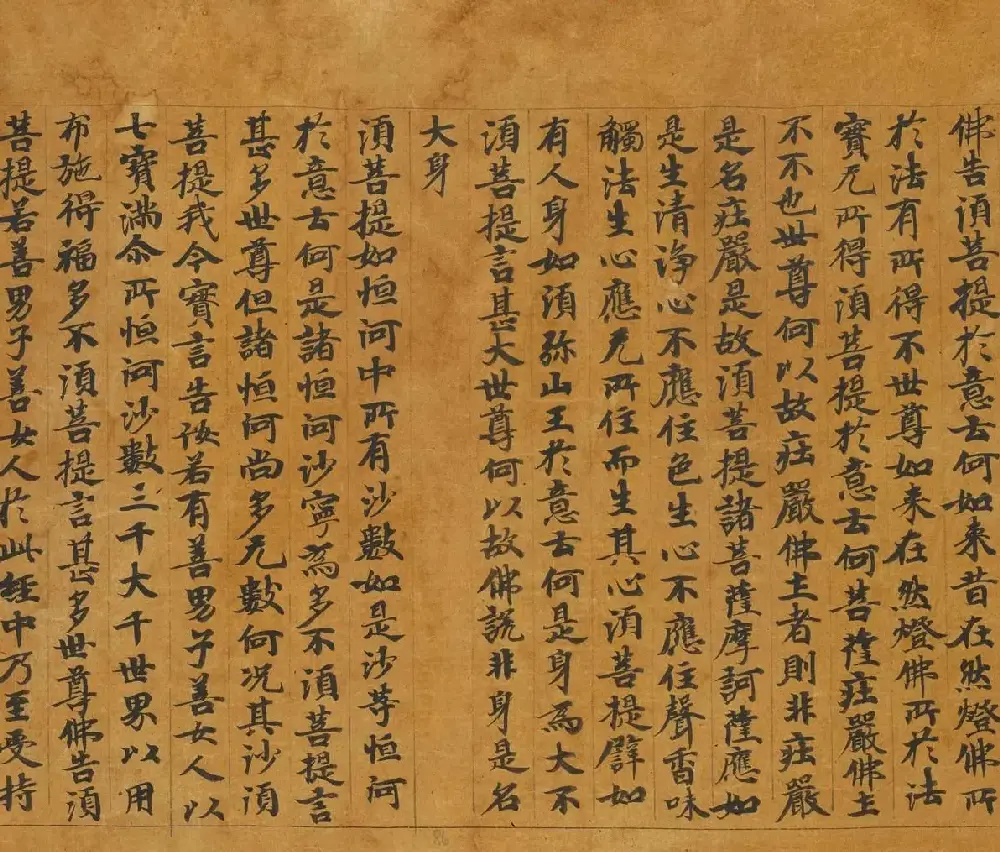 佛告須菩提於意云何如来昔在然燈佛所
於法有所得不世尊如来在然燈佛所於法
實无所得須菩提於意云何菩薩莊嚴佛土
不不也世尊何以故莊嚴佛土者則非莊嚴
是名莊嚴是故須菩提諸菩薩摩訶薩應如
是生清淨心不應住色生心不應住聲香味
觸法生心應无所住而生其心須菩提譬如
有人身如須弥山王於意云何是身為大不
須菩提言甚大世尊何以故佛說非身是名
大身
須菩提如恒河中所有沙數如是沙等恒河
於意云何是諸恒河沙寧為多不須菩提言
甚多世尊但諸恒河尚多无數何况其沙須
菩提我今實言告汝若有善男子善女人以
七寶滿尒所恒河沙數三千大千世界以用
布施得福多不須菩提言甚多世尊佛告須
菩提若善男子善女人於此經中乃至受持